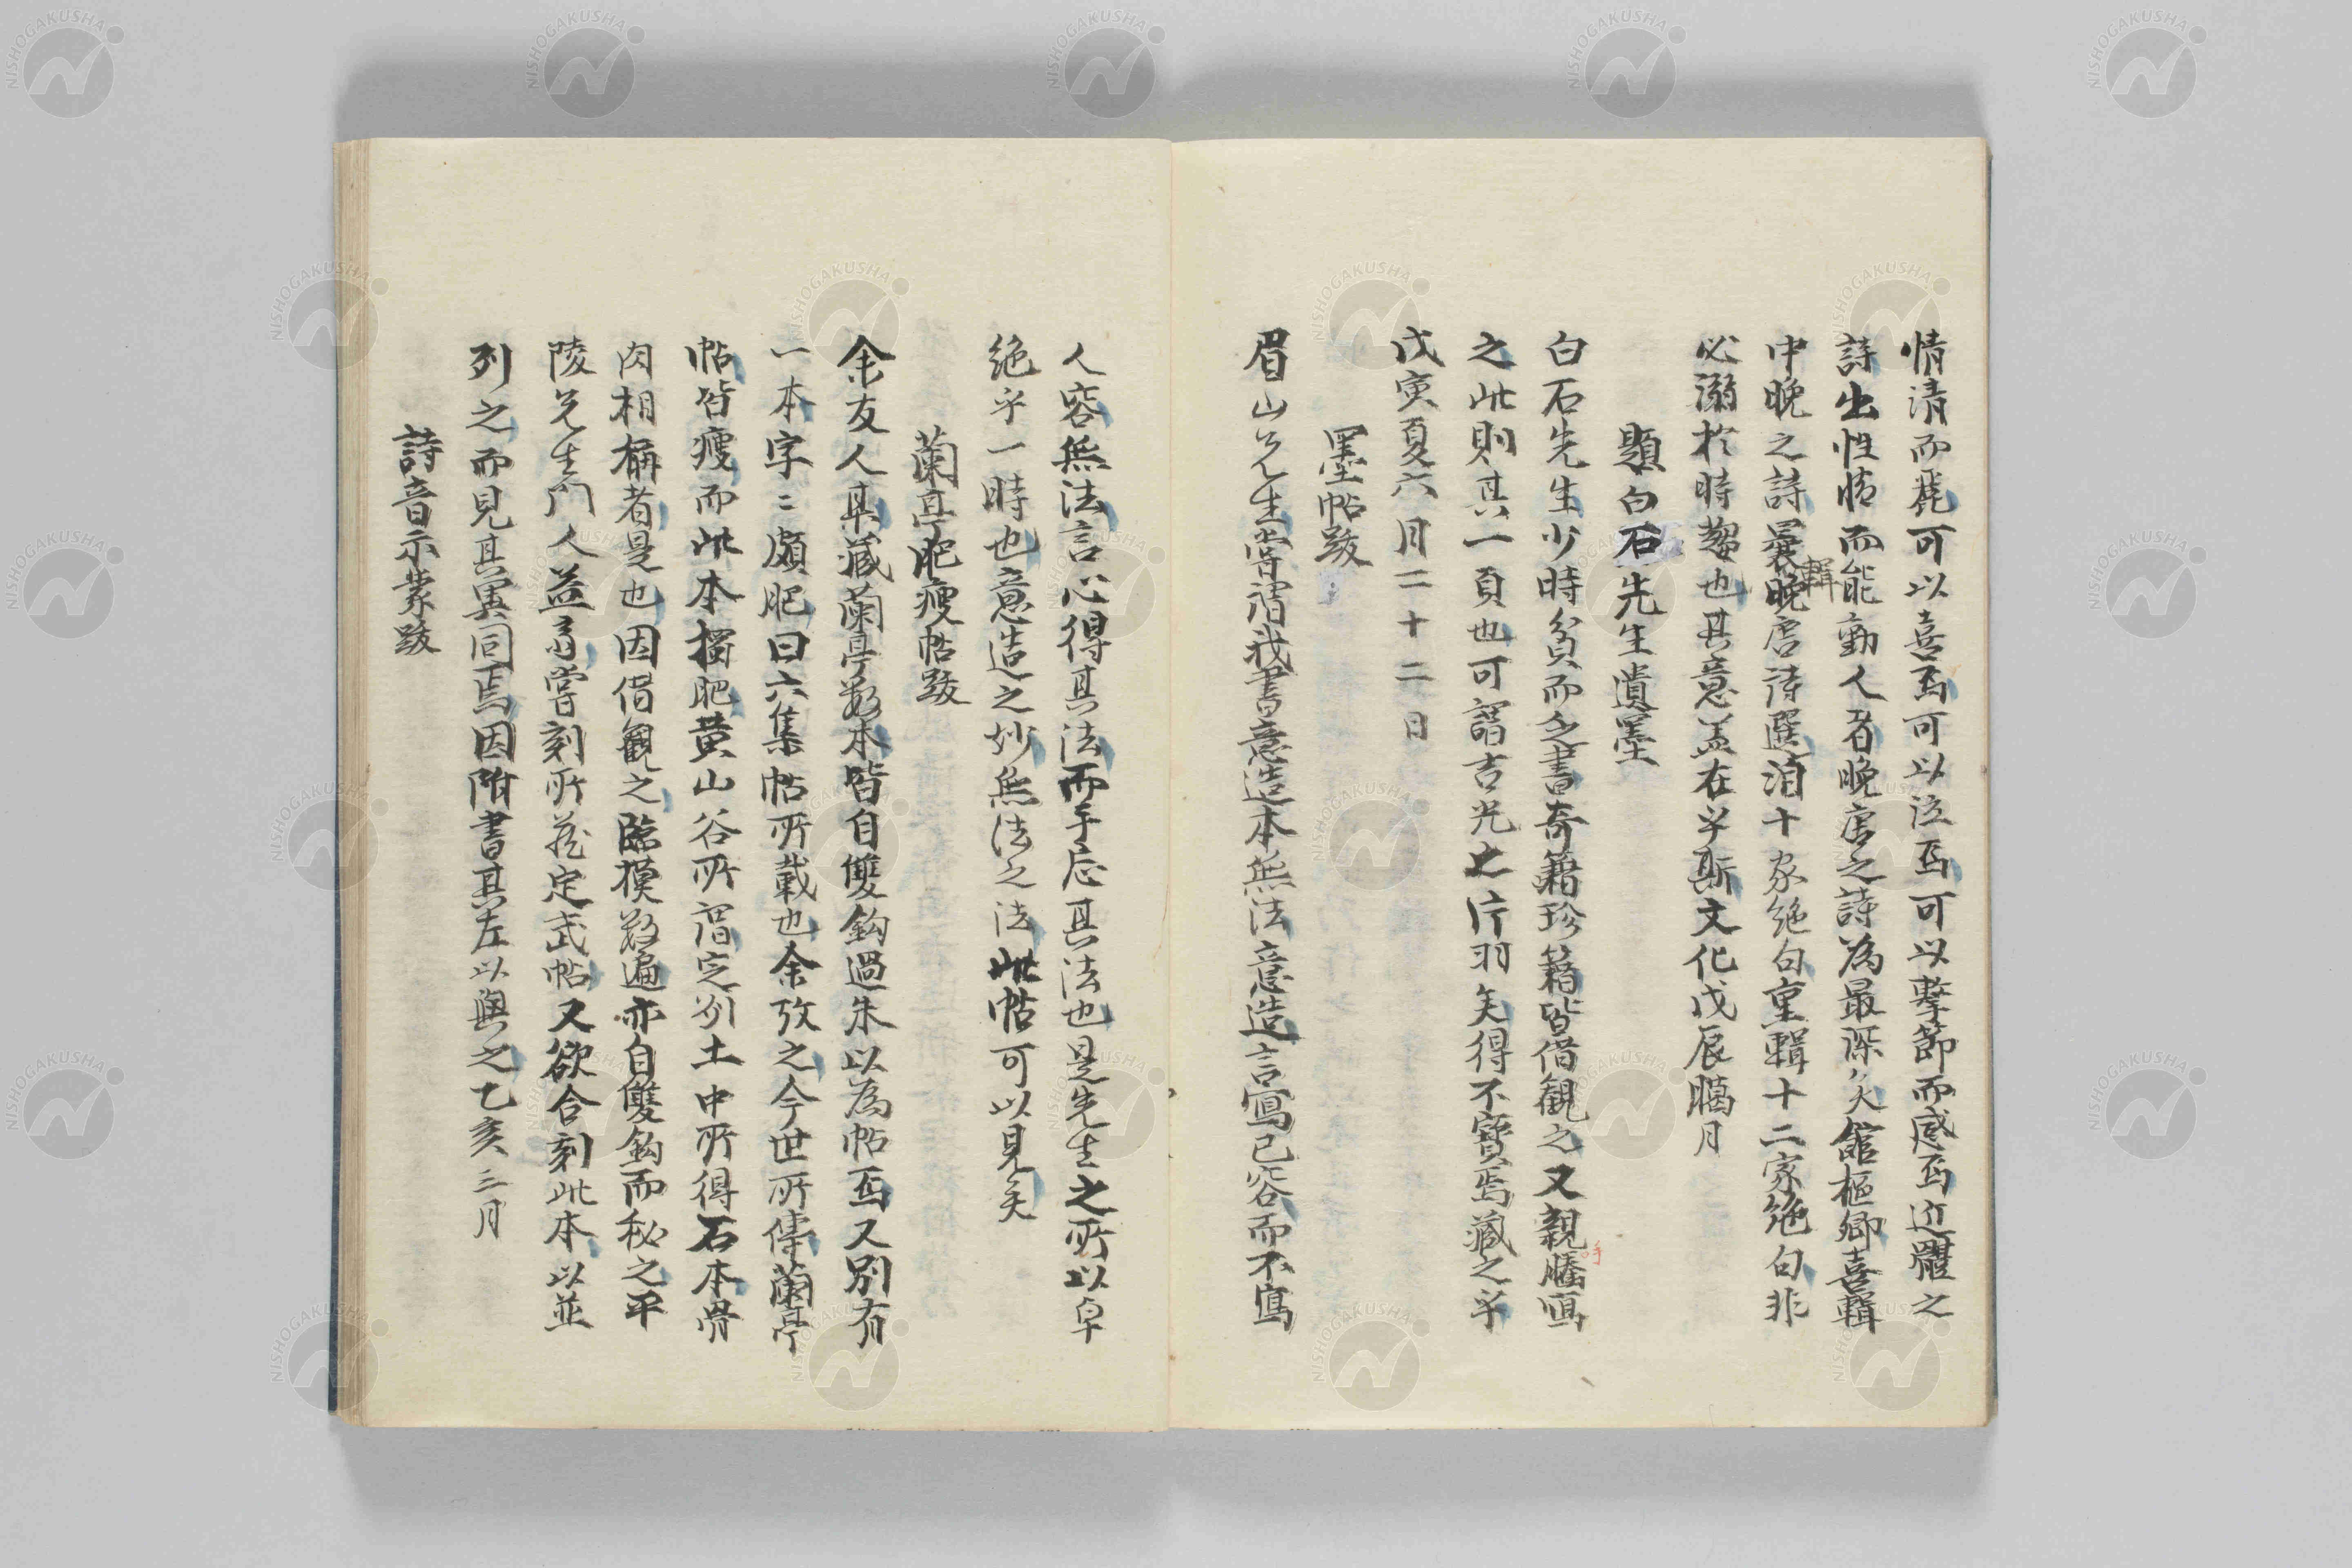 情清而麗可以喜焉可以泣焉可以擊節而感焉近體之
詩出性情而能動人者晚唐之詩為最深矣館樞卿喜輯
中晚之詩曩輯晚唐詩選洎十家絶句重輯十二家絶句非
必溺於時趨也其意盖在乎斯文化戊辰臈月
題白石先生遺墨
白石先生少時貧而乏書奇籍珍籍皆借觀之又親手騰寫
之此則其一頁也可謂吉光之片羽矣得不寶焉藏之乎
戊寅夏六月二十二日
墨帖跋
眉山先生嘗謂我書意造本無法意造言寫已容而不寫
人容無法言心得其法而手忘其法也是先生之所以卓
絶乎一時也意造之妙無法之法此帖可以見矣
蘭亭肥瘦帖跋
余友人某藏蘭亭數本皆自雙鈎過朱以為帖焉又別有
一本字〻頗肥曰六集帖所載也余攷之今世所傳蘭亭
帖皆瘦而此本獨肥黄山谷所謂定州土中所得石本骨
肉相稱者是也因借觀之臨摸數遍亦自雙鈎而秘之平
陵先生門人益斎嘗刻所藏定武帖又欲合刻此本以並
列之而見其異同焉因附書其左以與之乙亥三月
詩音示蒙跋
NISHOGAKUSHA